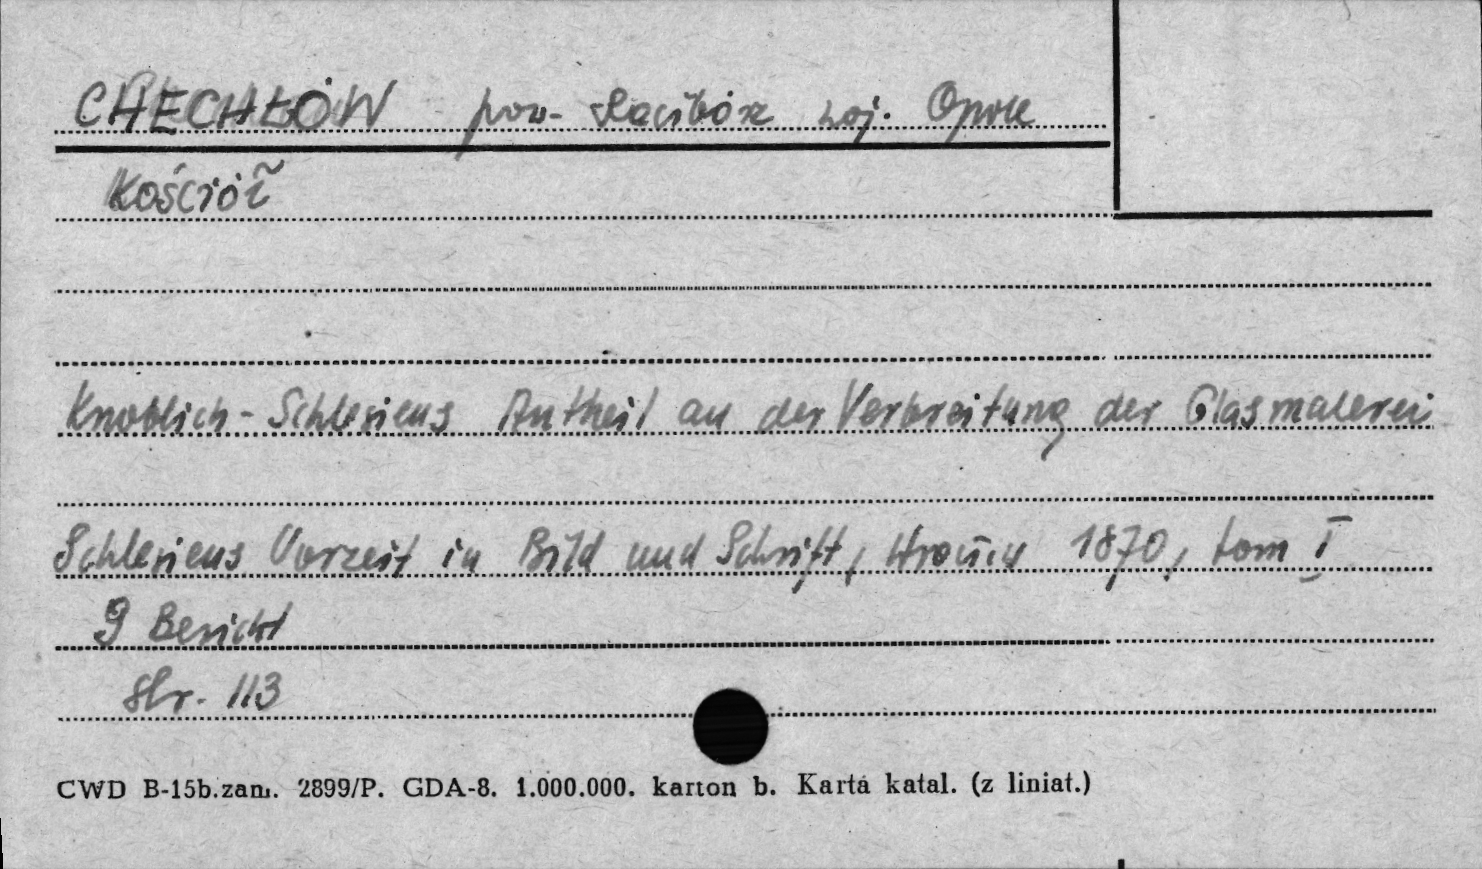 CHECHŁÓW pow. Racibórz woj. Opole
Kościół
Knoblich - Schlesiens Antheil an der Verbreitung der Glasmalerei
Schlesiens Vorzeit in Bild und Schrift, 1870, tom I
9 Bericht
str. 113
CWD B-15b.zam. 2899/P. GDA-8. 1.000.000. karton b. Karta katal. (z liniat.)